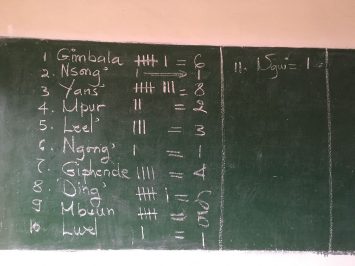 1 Gimbala 𝍸 I = 6
2. Nsong' I → 1
3 Yans 𝍸 III = 8
4. Mpur II = 2
5. Leel' III = 3
6 Ngong' I = 1
7 Giphende IIII = 4
8 Ding' 𝍸 I =
9 Mbuun 𝍸 = 5
10 Luxel I = 1
11. Ngwi = 1